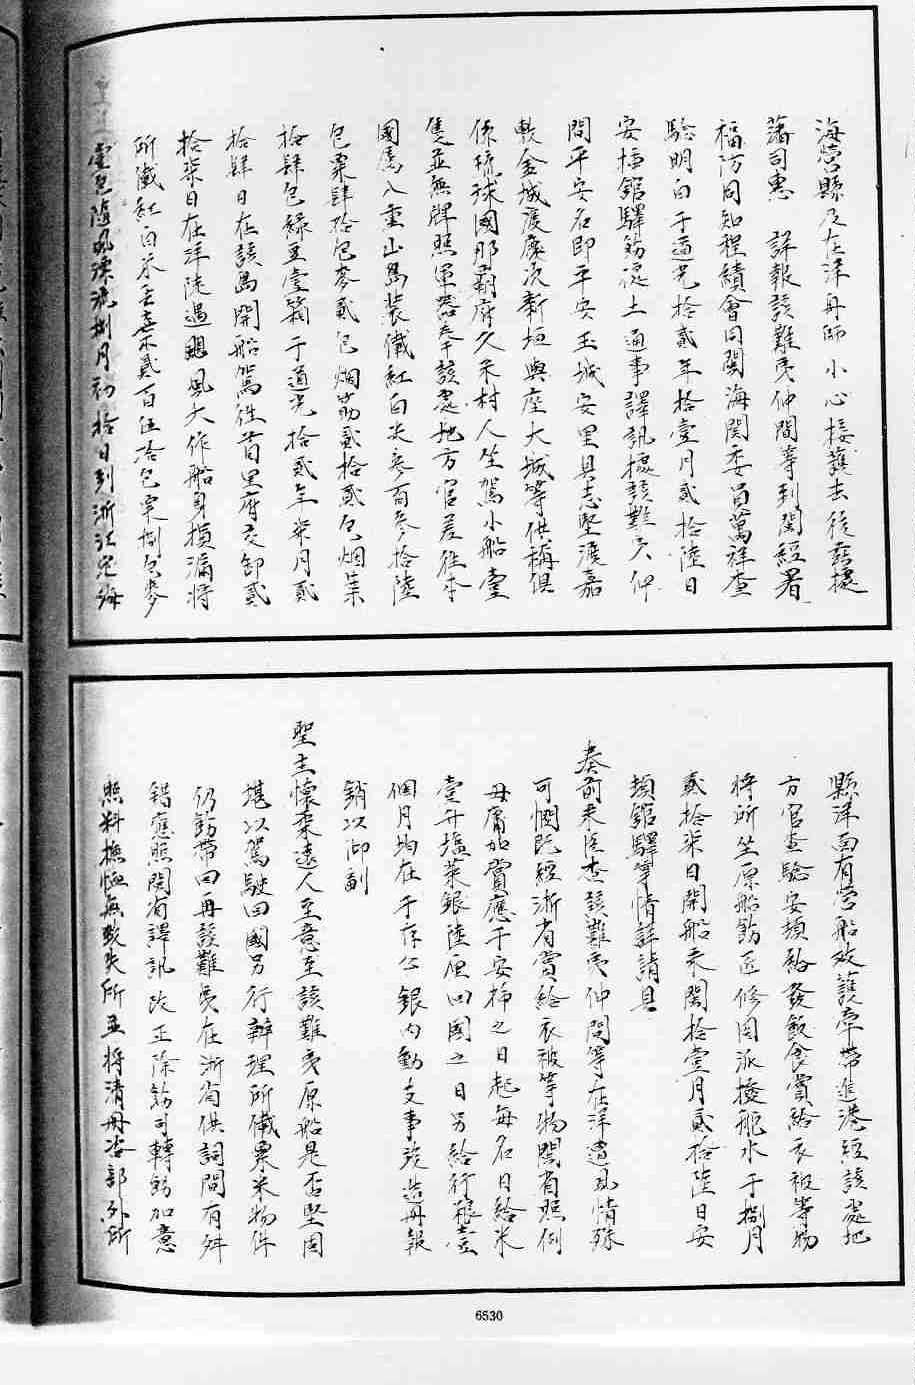 海營縣及在洋舟師小心接護去後玆據
藩司惠　詳報該難夷仲間等到閩經署
福防同知程績會同閩海関委員萬祥查
驗明白于道光拾貳年拾壹月貳拾陸日
安插舘驛飭差土通事譯訊據該難夷仲
間平安名即平安玉城安里具志堅渡嘉
敷金城渡慶次新垣與座大城等供稱俱
係琉球國那覇府久米村人坐駕小船壹
隻並無牌照軍器奉該處地方官差徃本
國属八重山島装儎紅白米参百参拾陸
包粟肆拾包麥貳包烟筋貳拾貳包烟葉
拾肆包綠豆壹箱于道光拾貳年柒月貳
拾肆日在該島開船駕徃首里府交卸貳
拾柒日在洋陡遇颶風大作船身損漏將
所儎紅白米丟棄貳百伍拾包粟捌包麥
壹包隨風漂流捌月初拾日到浙江定海
縣洋面有營船救護牽帶進港經該處地
方官查驗安頓給發飯食賞給衣被等物
將所坐原船飭匠修固派撥舵水于捌月
貳拾柒日開船来閩拾壹月貳拾陸日安
頓舘驛等情詳請具
奏前来臣查該難夷仲間等在洋遭風情殊
可憫既經浙省賞給衣被等物閩省照例
毋庸加賞應于安揷之日起每名日給米
壹升塩菜銀陸厘回國之日另給行糧壹
個月均在于存公銀内動支事竣造冊報
銷以仰副
聖主懷柔遠人至意至該難夷原船是否堅固
堪以駕駛回國另行辦理所儎粟米物件
仍飭帶回再該難夷在浙省供詞間有舛
錯應照閩省譯訊改正除飭司轉飭加意
照料撫恤無致失所並將清冊咨部外所
6530